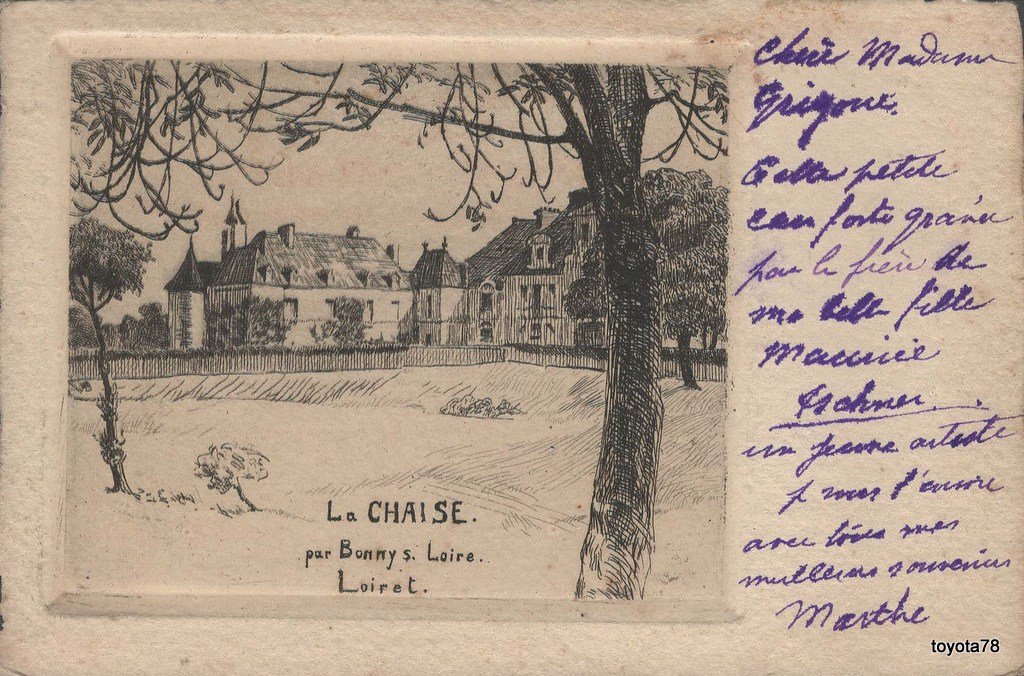 La CHAISE.
par Bonny s. Loire.
Loiret.
Chère Madame
Cette petite
eau forte gravée
par le frère de
ma belle fille
Maurice
un jeune artiste
avec tous mes
meilleurs souvenirs
Marthe
toyota78